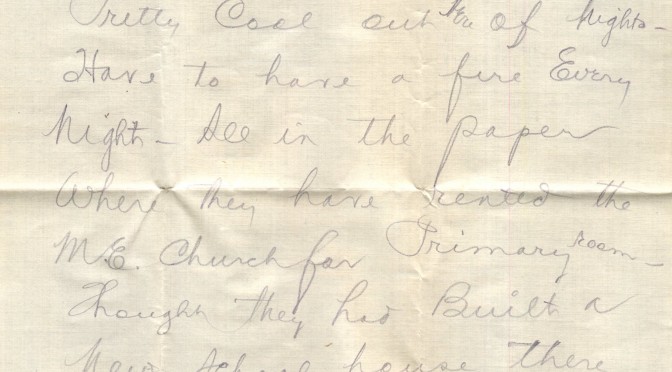 Pretty Cool out here of Nights -
Have to have a fire Every
Night - See in the paper
Where they have rented the
M.E. Church for Primary room -
Thought they had Built a
New School house there